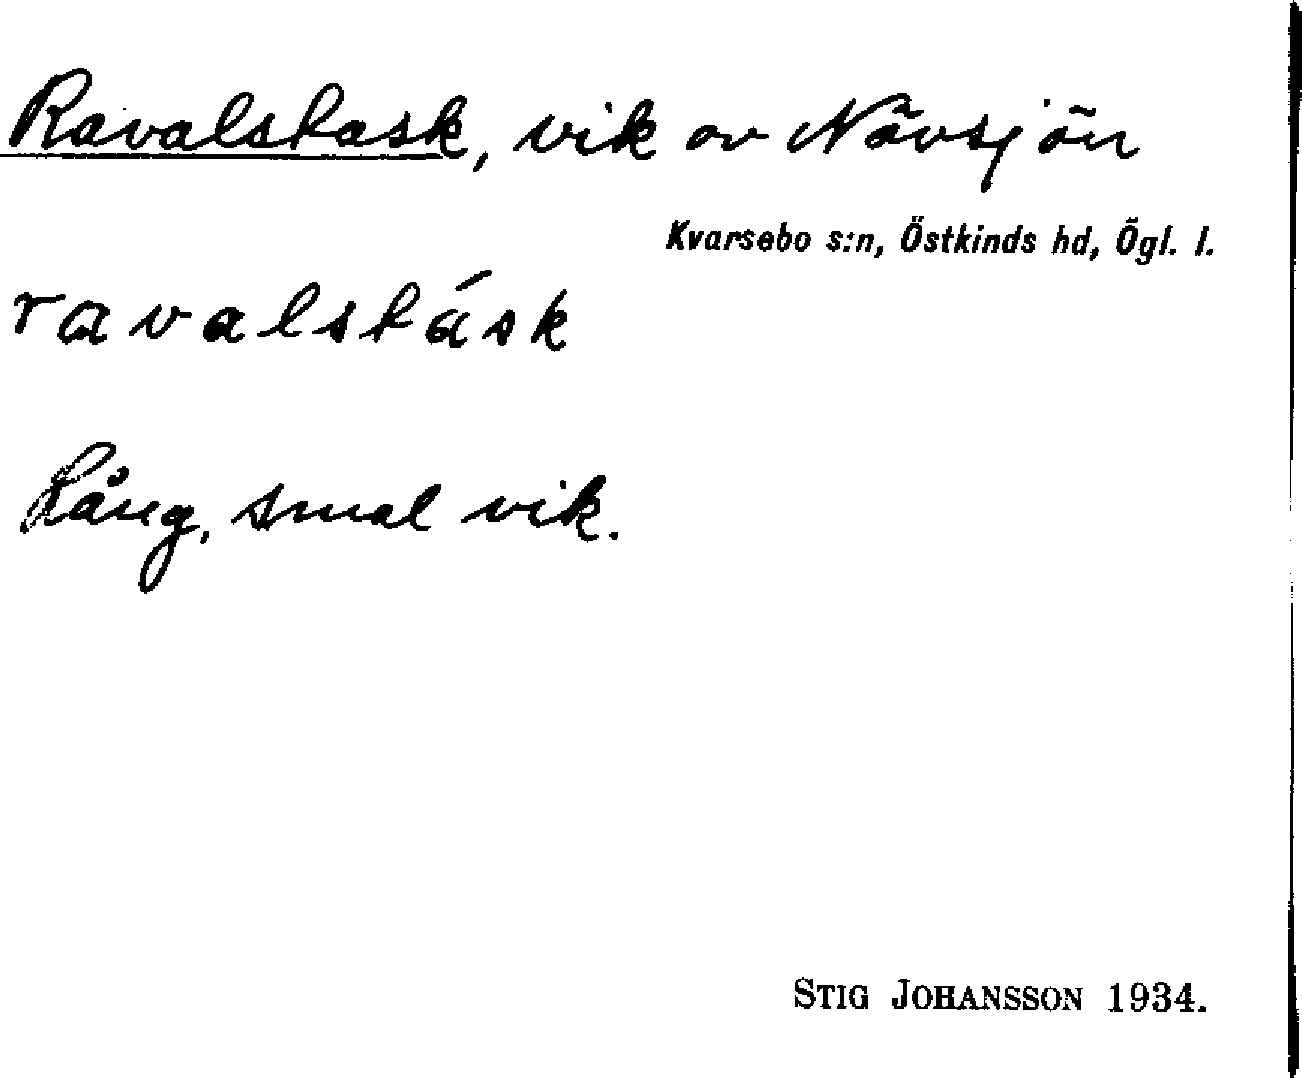 Ravalskask, vik av Nävsjön
Kvarsebo s:n, Östkinds hd, Ögl. l.
ravalskásk
Lång, smal vik.
STIG JOHANSSON 1934.